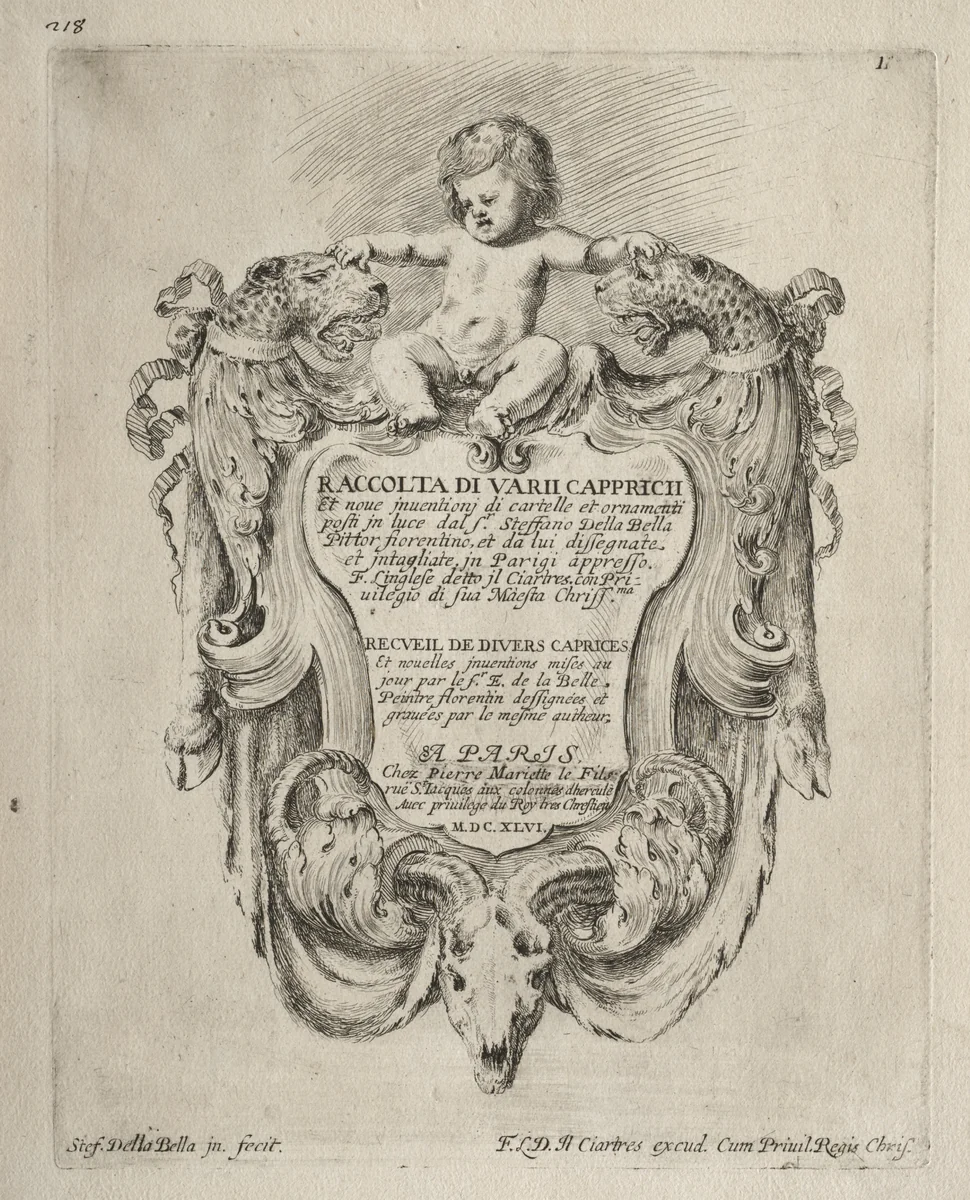 218
1
RACCOLTA DI VARII CAPPRICII
Et noue jnuentionj di cartelle et ornamenti
posti jn luce dal sr. Steffano Della Bella
Pittor fiorentino, et da lui dissegnate,
et jntagliate, jn Parigi appresso.
F. Linglese detto jl Ciartres. con Pri-
uilegio di sua Maesta Chriss.ma
RECVEIL DE DIVERS CAPRICES
Et nouelles jnuentions mises au
jour par le sr. E. de la Belle.
Peintre florentin dessignées et
grauées par le mesme autheur.
A PARIS.
Chez Pierre Mariette le Fils
ruë St. Iacques aux colonnes dhercule
Auec priuilege du Roy tres Chrestien
M.DC.XLVI.
Stef. Della Bella jn. fecit.
F.L.D. Il Ciartres excud. Cum Priuil. Regis Chris.